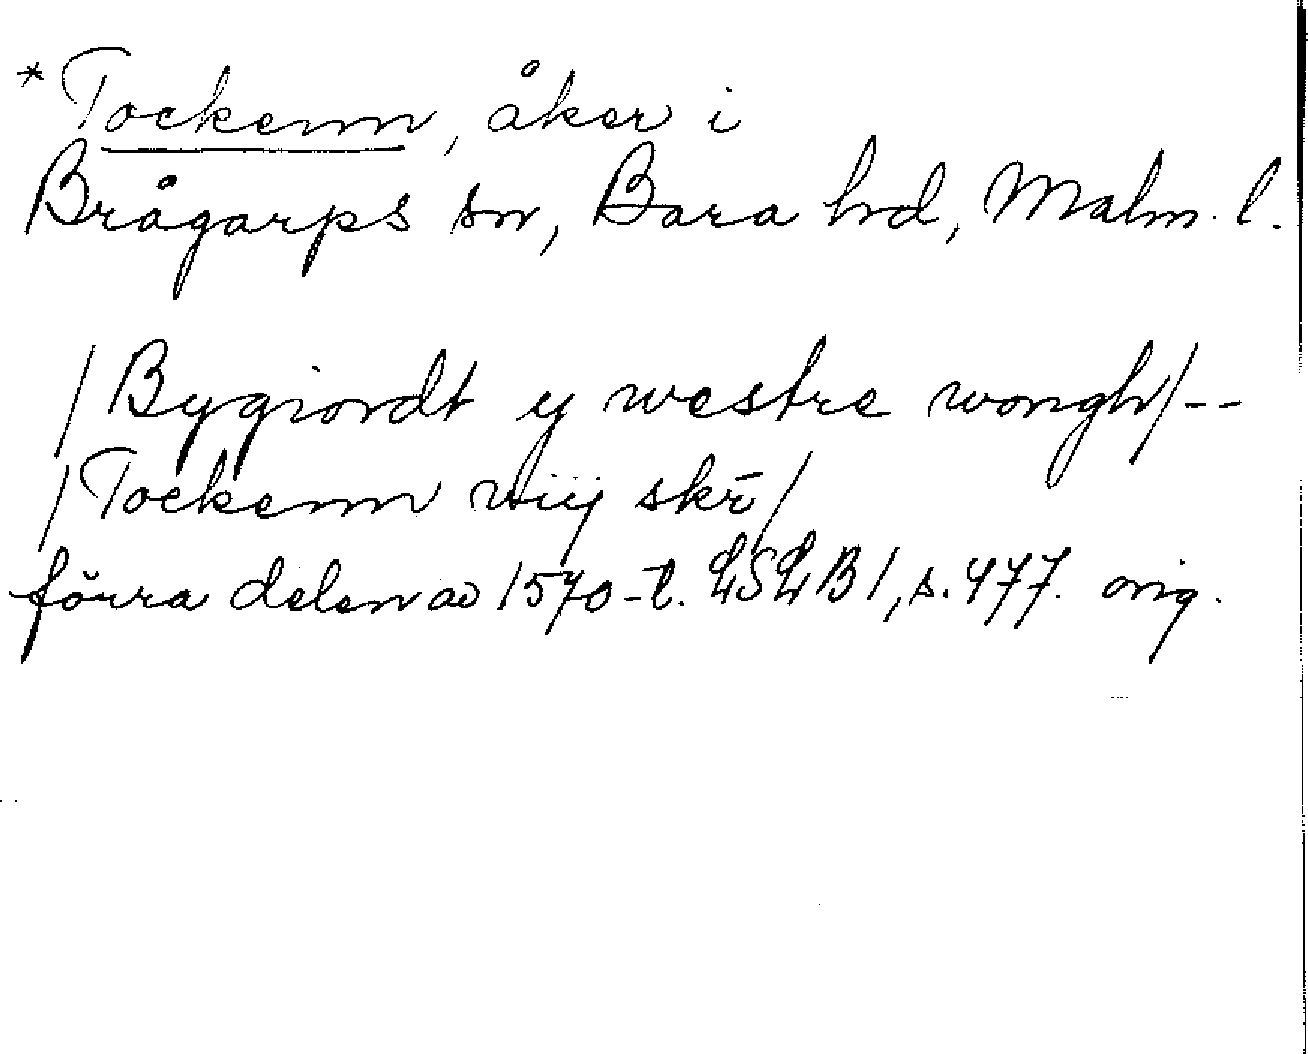 *Tockenn, åker i
Brågarps sn, Bara hd, Malm. l.
/Bygiordt y westre wongh/--
/Tockenn viij skr̄/
förra delen av 1570-t. LSLB1, s. 477. orig.